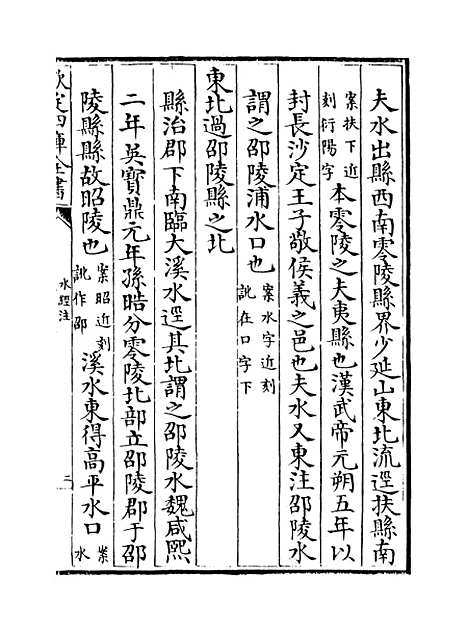 夫水出縣西南零陵縣界少延山東北流逕扶縣南
案扶下近
刻衍陽字
本零陵之夫夷縣也漢武帝元朔五年以
封長沙定王子敬侯義之邑也夫水又東注邵陵水
謂之邵陵浦水口也
案水字近刻
訛在口字下
東北過邵陵縣之北
縣治郡下南臨大溪水逕其北謂之邵陵水魏咸熙
二年吳寶鼎元年孫皓分零陵北部立邵陵郡于邵
陵縣縣故昭陵也
案昭近刻
訛作邵
溪水東得高平水口
案
水
欽定四庫全書
水經注
二